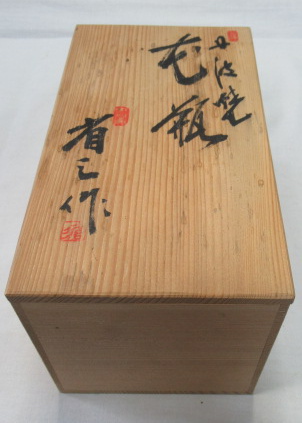 丹波焼
花瓶
省三作